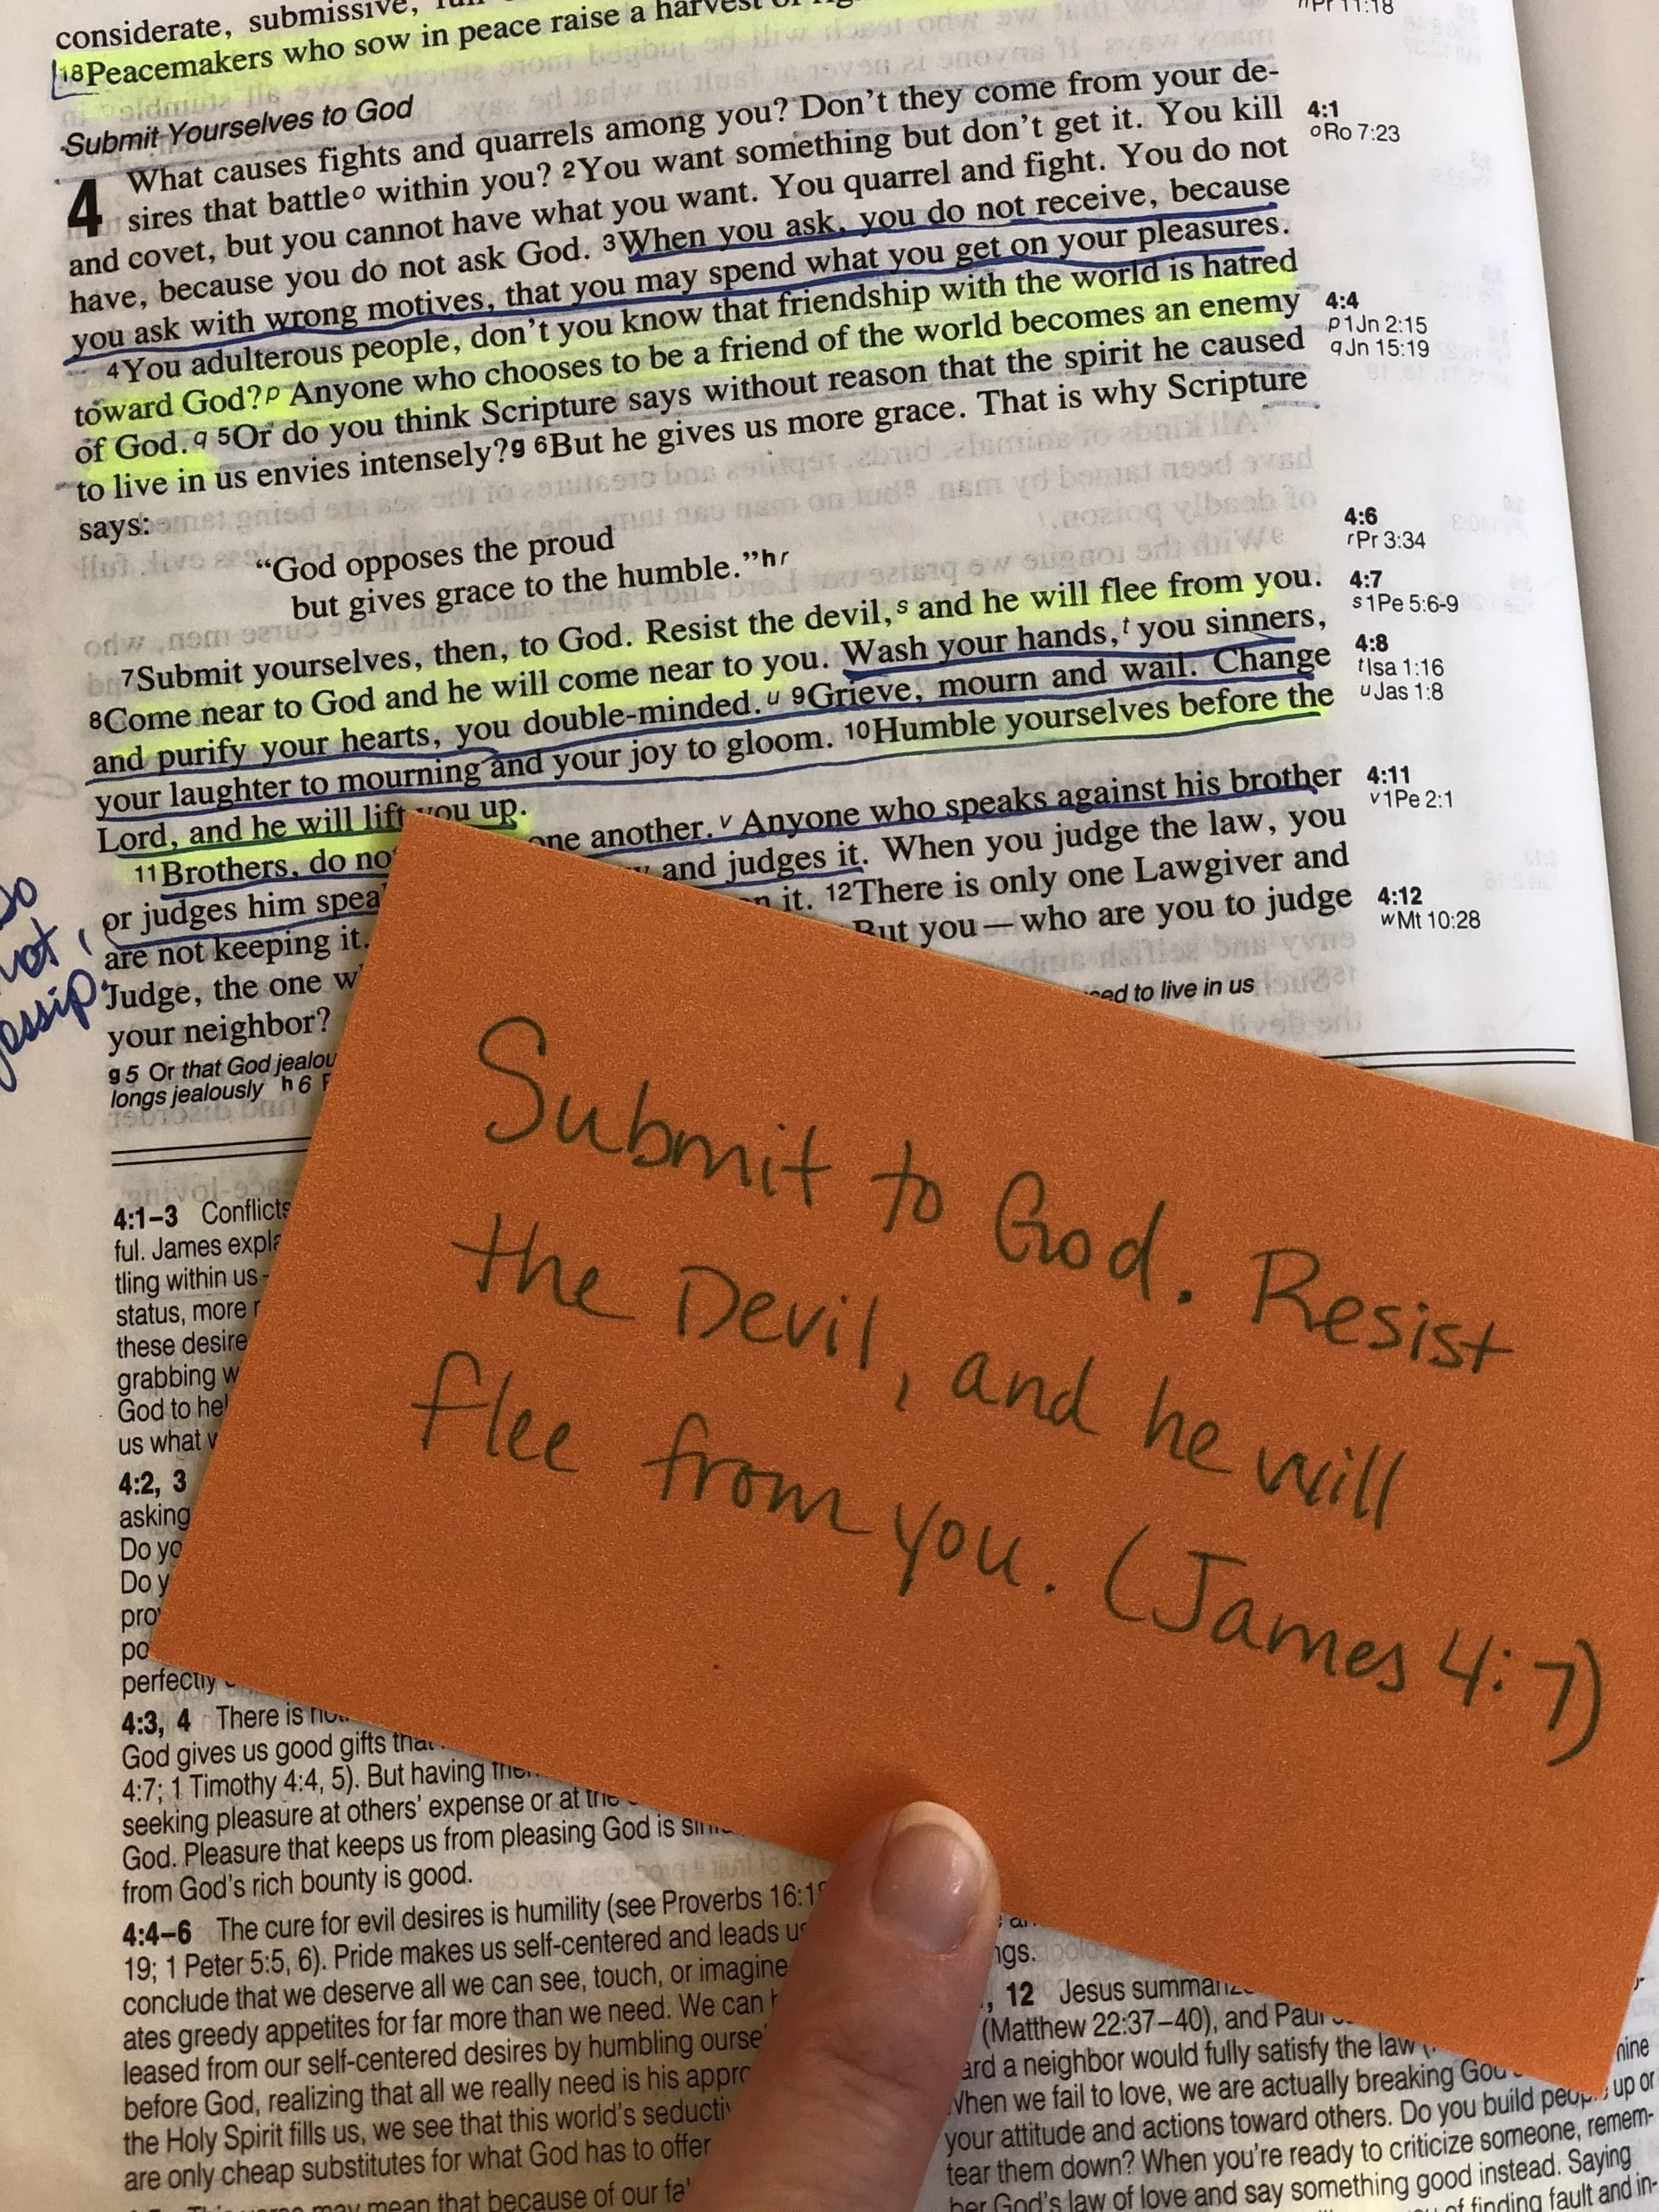 considerate, submissive,
18Peacemakers who sow in peace raise a harvest of
Pr 11:18
Submit Yourselves to God
4 What causes fights and quarrels among you? Don't they come from your de-
sires that battleo within you? 2You want something but don't get it. You kill
and covet, but you cannot have what you want. You quarrel and fight. You do not
have, because you do not ask God. 3When you ask, you do not receive, because
you ask with wrong motives, that you may spend what you get on your pleasures.
4You adulterous people, don't you know that friendship with the world is hatred
toward God?p Anyone who chooses to be a friend of the world becomes an enemy
of God.q 5Or do you think Scripture says without reason that the spirit he caused
to live in us envies intensely?g 6But he gives us more grace. That is why Scripture
says:
"God opposes the proud
but gives grace to the humble."hr
7Submit yourselves, then, to God. Resist the devil,s and he will flee from you.
8Come near to God and he will come near to you. Wash your hands,t you sinners,
and purify your hearts, you double-minded.u 9Grieve, mourn and wail. Change
your laughter to mourning and your joy to gloom. 10Humble yourselves before the
Lord, and he will lift you up.
11Brothers, do no one another.v Anyone who speaks against his brother
or judges him spea and judges it. When you judge the law, you
are not keeping it, it. 12There is only one Lawgiver and
Judge, the one w But you—who are you to judge
your neighbor?
g5 Or that God jealou sed to live in us
longs jealously h6
4:1
oRo 7:23
4:4
p1Jn 2:15
qJn 15:19
4:6
rPr 3:34
4:7
s1Pe 5:6-9
4:8
tIsa 1:16
uJas 1:8
4:11
v1Pe 2:1
4:12
wMt 10:28
Do
not
gossip.
Submit to God. Resist
the Devil, and he will
flee from you. (James 4:7)
4:1–3 Conflicts
ful. James expla
tling within us-
status, more r
these desire
grabbing w
God to hel
us what w
4:2, 3
asking
Do yo
Do y
pro
po
perfectly
4:3, 4 There is no
God gives us good gifts that
4:7; 1 Timothy 4:4, 5). But having
seeking pleasure at others' expense or at the
God. Pleasure that keeps us from pleasing God is
from God's rich bounty is good.
4:4–6 The cure for evil desires is humility (see Proverbs 16:18
19; 1 Peter 5:5, 6). Pride makes us self-centered and leads us
conclude that we deserve all we can see, touch, or imagine
ates greedy appetites for far more than we need. We can
leased from our self-centered desires by humbling ourse
before God, realizing that all we really need is his appro
the Holy Spirit fills us, we see that this world's seducti
are only cheap substitutes for what God has to offer
may mean that because of our fa
ngs.
, 12 Jesus summariz
(Matthew 22:37–40), and Paul
ard a neighbor would fully satisfy the law
When we fail to love, we are actually breaking God mine
your attitude and actions toward others. Do you build people up or
tear them down? When you're ready to criticize someone, remem-
ber God's law of love and say something good instead. Saying
of finding fault and in-